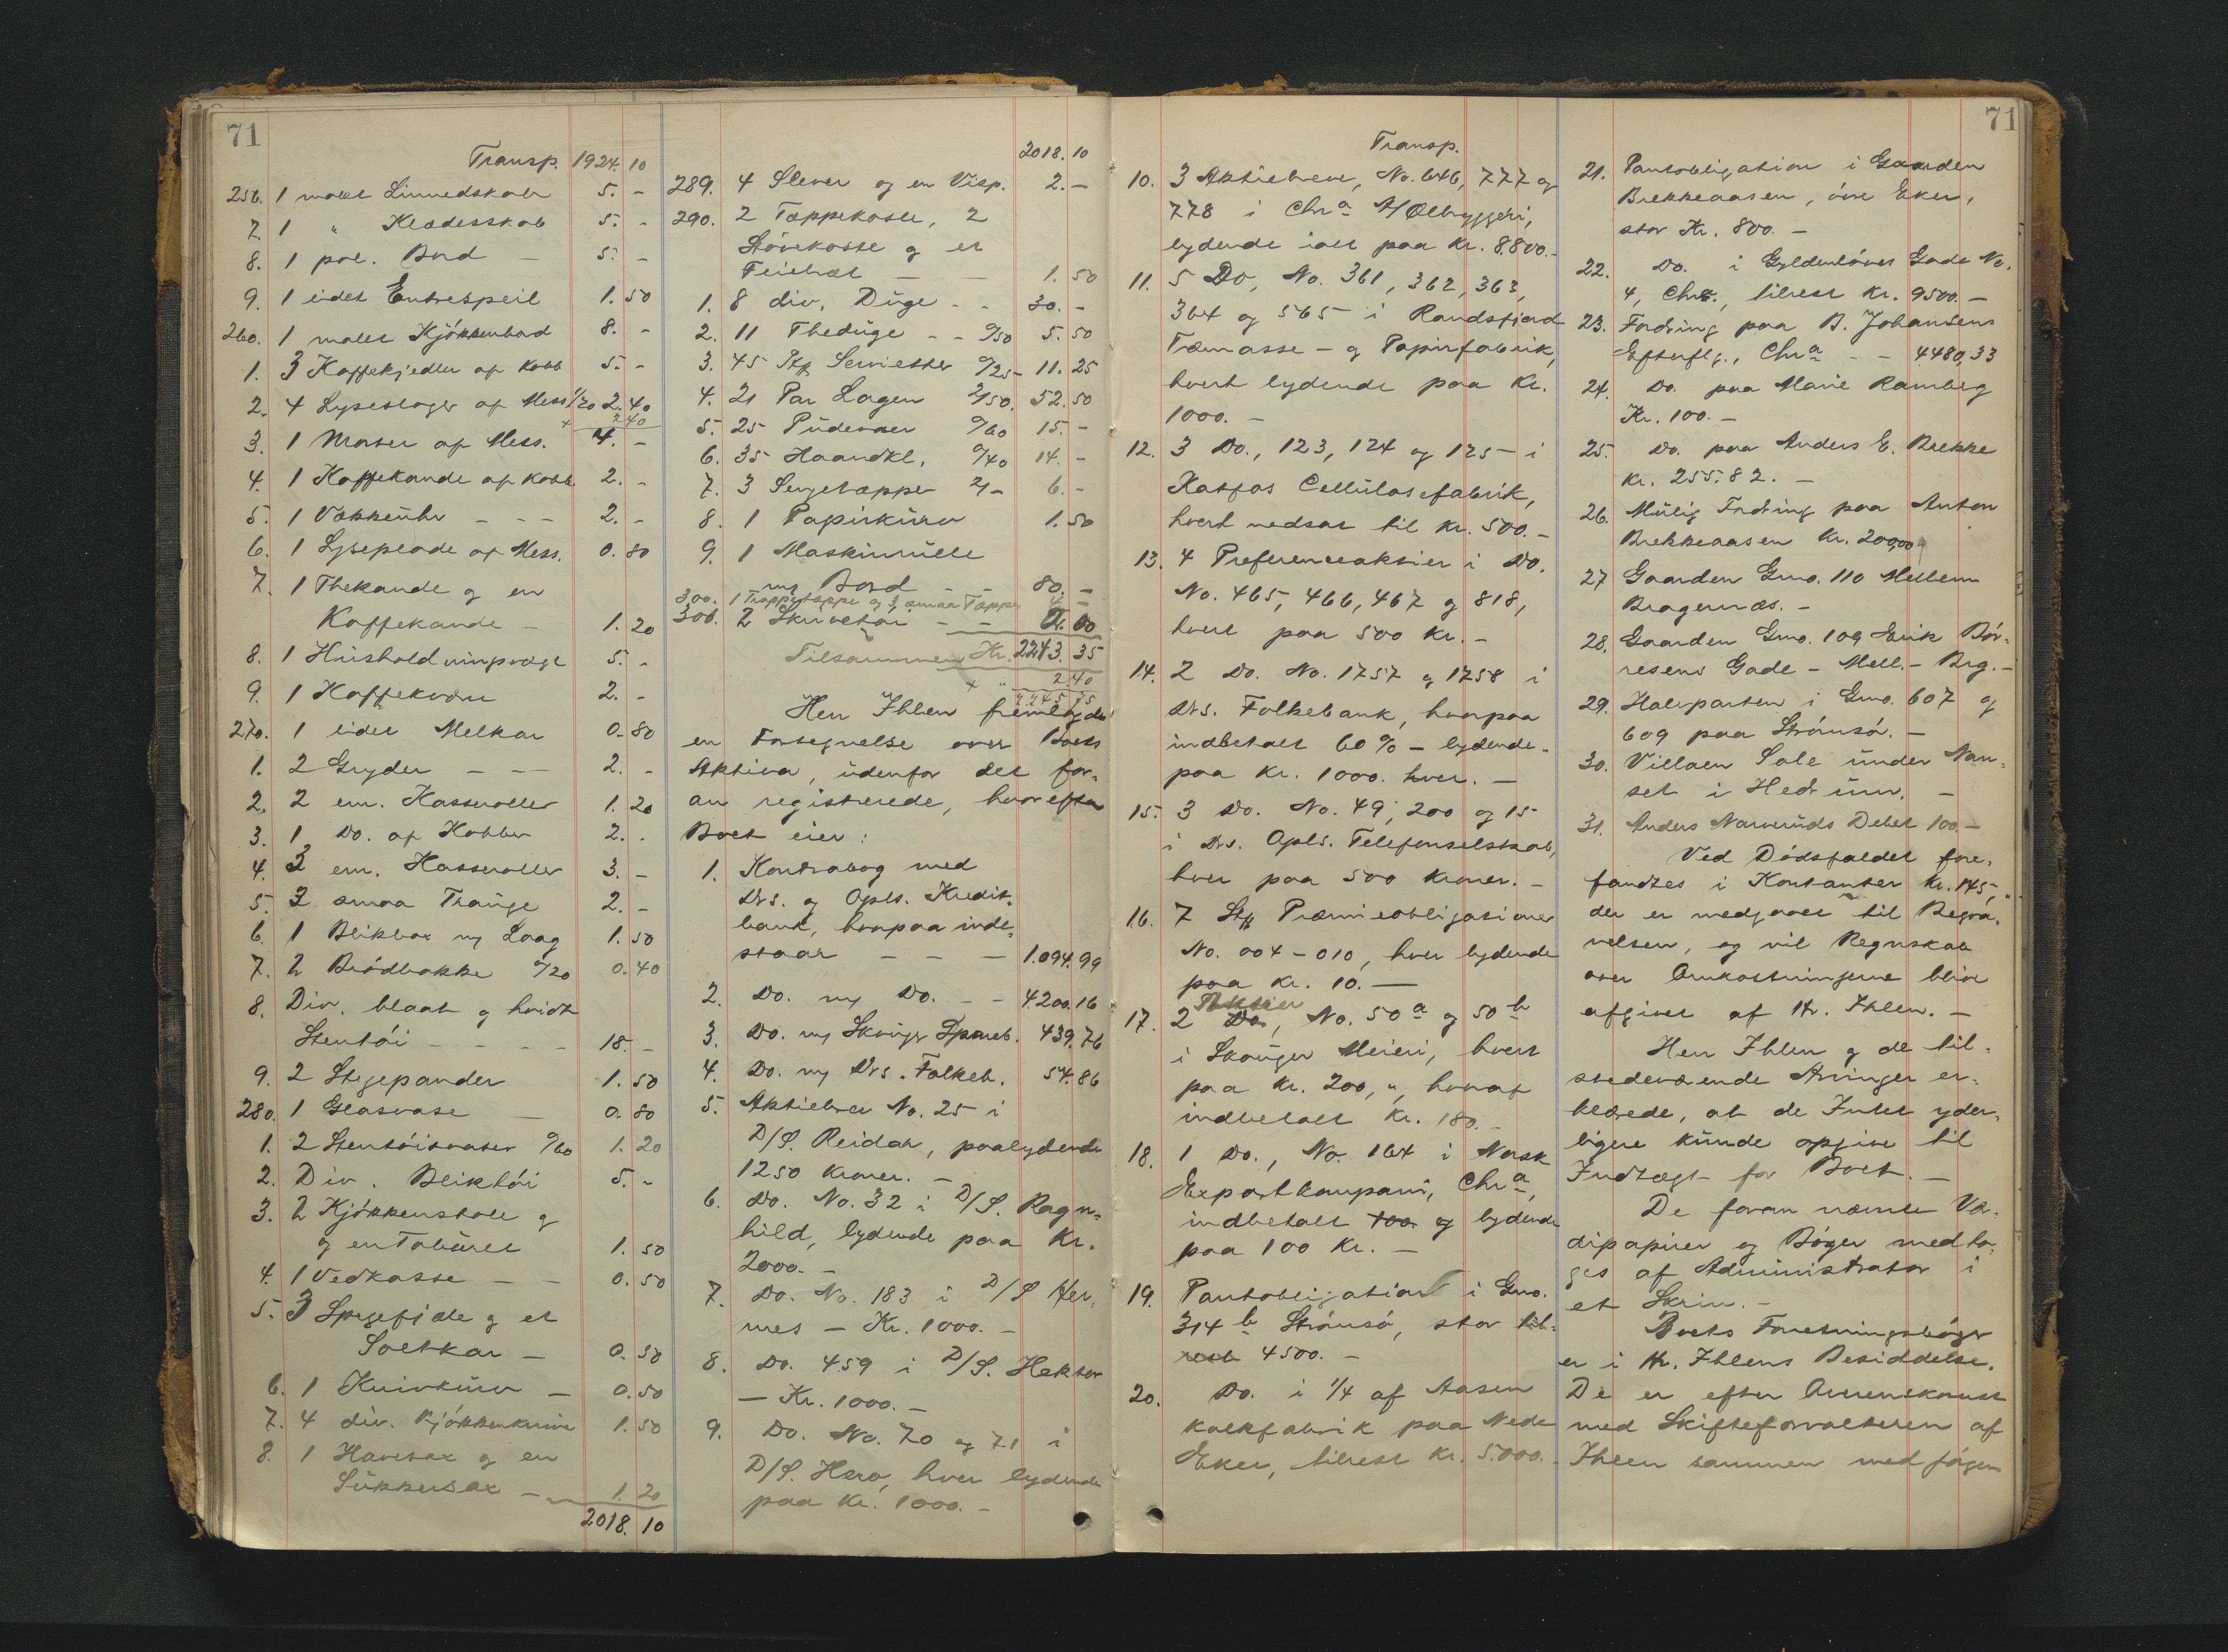 71
Transp. 1924. 10
256. 1 malet Linnedskab 5. -
7. 1 " Klædesskab 5. -
8. 1 pol. Bord - 5. -
9. 1 lidet Entrespeil 1. 50
260. 1 malet Kjøkkenbord 8. -
1. 3 Kaffekjedler af Kobb 5. -
2. 4 Lysestager af Mess 1/20 2. 40
+ 2 40
3. 1 Morter af Mess. 4. -
4. 1 Kaffekande af Kobb 2. -
5. 1 Vækkeuhr - - - 2. -
6. 1 Lyseplade af Mess. 0. 80
7. 1 Thekande og en
Kaffekande - 1. 20
8. 1 Husholdningsvægt 5. -
9. 1 Kaffekværn 2. -
270. 1 lidet Melkar 0. 80
1. 2 Gryder - - - 2. -
2. 2 em. Kasseroller 1. 20
3. 1 Do. af Kobber 2. -
4. 3 em. Kasseroller 3. -
5. 3 smaa Trauge 2. -
6. 1 Blikbox m/ Laag 1. 50
7. 2 Brødbakke 0/20 0. 40
8. Div. blaat og hvidt
Stentøi - - - - 18. -
9. 2 Stegepander 1. 50
280. 1 Glasvase - 0. 80
1. 2 Stentøisvaser 0/60 1. 20
2. Div. Bliktøi 5. -
3. 2 Kjøkkenstole og
og en Taburet 1. 50
4. 1 Vedkasse - - 0. 50
5. 3 Spegefjæle og et
Saltkar - 0. 50
6. 1 Knivkurv - 0. 50
7. 4 div. Kjøkkenknive 1. 50
8. 1 Havesax og en
Sukkersax - 1. 20
2018. 10
2018. 10
289. 4 Slever og en Visp. 2. -
290. 2 Tæppekoste, 2
Støvekoste og et
Feiebræt - - 1. 50
1. 8 div. Duge - - 30. -
2. 11 Theduge - - 0/50 5. 50
3. 45 Stk Servietter 0/25 - 11. 25
4. 21 Par Lagen 2/50. 52. 50
5. 25 Pudevaer 0/60 15. -
6. 35 Haandkl. 0/40 14. -
7. 3 Sengetæpper 2/- 6. -
8. 1 Papirkurv 1. 50
9. 1 Maskinrulle
m/ Bord - 80. -
300. 1 Trappetæppe og 3 smaa Tæpper
300. 2 Skrivetøi - -
Tilsammen Kr. 2243. 35
+ " 2 40
2245 75
Herr Ihlen fremlagde
en Fortegnelse over Boets
Aktiva, udenfor det for-
an registrerede, hvorefter
Boet eier:
1. Kontrabog med
Drs. og Opls. Kredit-
bank, hvorpaa inde-
staar - - - 1.094. 99
2. Do. m/ Do. - - 4.200. 16
3. Do. m/ Skouger Spareb. 439. 76
4. Do. m/ Drs. Folkeb. 54. 86
5. Aktiebrev No. 25 i
D/S. Reidar, paalydende
1250 Kroner. -
6. Do. No. 32 i D/S. Ragn-
hild, lydende paa Kr.
2000. -
7. Do. No. 183 i D/S Her-
mes - Kr. 1000. -
8. Do. 459 i D/S. Hektor
- Kr. 1000. -
9. Do. No. 70 og 71 i
D/S. Hero, hver lydende
paa Kr. 1000. -
71
Transp.
10. 3 Aktiebreve, No. 646, 777 og
778 i Chra A/Ølbryggeri,
lydende ialt paa Kr. 8.800. -
11. 5 Do, No. 361, 362, 363,
364 og 565 i Randsfjord
Træmasse - og Papirfabrik,
hvert lydende paa Kr.
1000. -
12. 3 Do., 123, 124 og 125 i
Katfos Cellulosefabrik,
hvert nedsat til Kr. 500. -
13. 4 Preferenceaktier i Do.
No. 465, 466, 467 og 818,
hvert paa 500 Kr. -
14. 2 Do. No. 1757 og 1758 i
Drs. Folkebank, hvorpaa
indbetalt 60 % - lydende
paa Kr. 1000. hver. -
15. 3 Do. No. 49, 200 og 15
i Drs. Opls. Telefonselskab,
hver paa 500 kroner. -
16. 7 Stk Præmieobligationer
No. 004 - 010, hver lydende
paa Kr. 10. -
Aktier
17. 2 Do, No. 50a og 50b
i Skouger Meieri, hvert
paa Kr. 200, ", hvoraf
indbetalt Kr. 180. -
18. 1 Do., No. 164 i Norsk
Exportkompani, Chra,
indbetalt 100 og lydende
paa 100 Kr. -
19. Pantobligation i Gno.
314 b Strømsø, stor til-
rest 4500. -
20. Do. i 1/4 af Aasen
Kalkfabrik paa Nedre
Eker, tilrest Kr. 5.000. -
71
21. Pantobligation i Gaarden
Brekkeaasen, øvre Eker,
stor Kr. 800. -
22. Do. i Gyldenløves Gade No.
4, Chra., tilrest Kr. 9500. -
23. Fordring paa B. Johansens
Efterflg., Chra - - 4480,33
24. Do. paa Marie Ramberg
Kr. 100. -
25. Do. paa Anders E. Brekke
Kr. 255.82. -
26. Mulig Fordring paa Anton
Brekkeaasen Kr. 200,00
27 Gaarden Gmo. 110 Mellem
Bragernæs. -
28. Gaarden Gmo. 109 Erik Bør-
resens Gade - Mell. - Brg. -
29. Halvparten i Gmo. 607 og
609 paa Strømsø. -
30. Villaen Sole under Nan-
set i Hedrum. -
31. Anders Narveruds Debet 100. -
Ved Dødsfaldet fore-
fandtes i Kontanter Kr. 145,"
der er medgaaet til Begra-
velsen, og vil Regnskab
over Omkostningerne blive
afgivet af Hr. Ihlen. -
Herr Ihlen og de til-
stedeværende Arvinger er-
klærede, at de Intet yder-
ligere kunde opgive til
Indtægt for Boet. -
De foran nævnte Væ-
dipapirer og Bøger medta-
ges af Administrator i
et Skrin. -
Boets Forretningsbøger
er i Hr. Ihlens Besiddelse.
De er efter Overenskomst
med Skifteforvalteren af
Ihlen sammen med